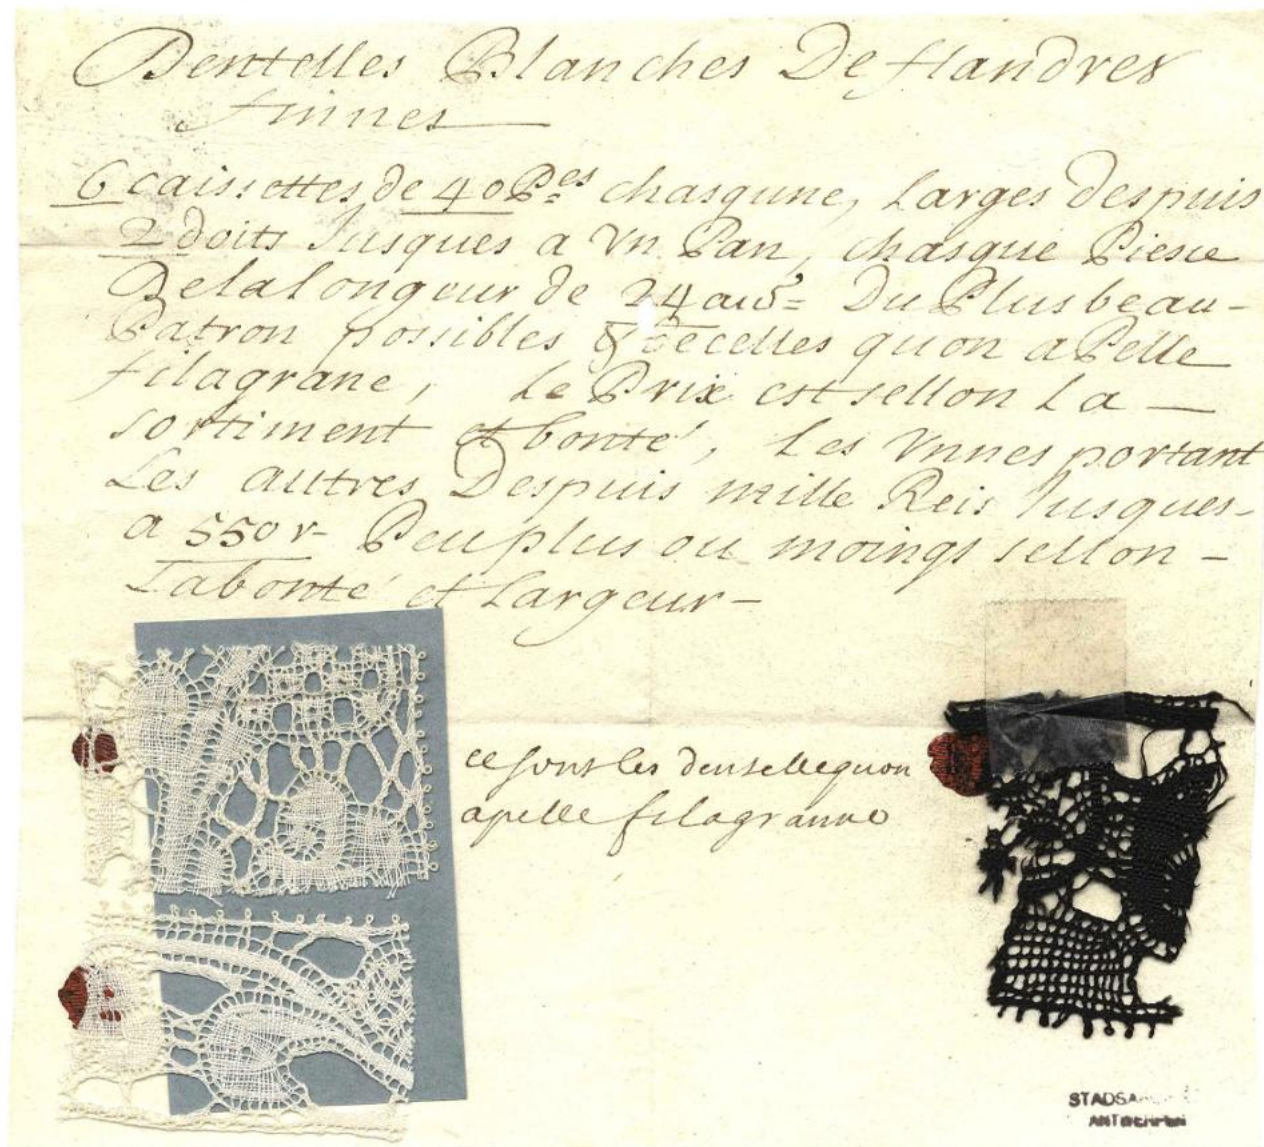 Dentelles Blanches De flandres
finnes
6 caissettes de 40 Pes chasqune, Larges despuis
2 doits Jusques a Vn Pan, chasque Piesce
Delalongeur de 24 au⁵ Du Plus beau-
Patron possibles & decelles quon aPelle
filagrane, Le Prix est sellon La —
sortiment et bonté, Les Vnnes portant
Les autres Despuis mille Reis Jusques-
a 550 r- Peu plus ou moings sellon -
Labonté et Largeur -
ce sont les dentelle quon
apelle filagranne
STADSA
ANTWERPEN